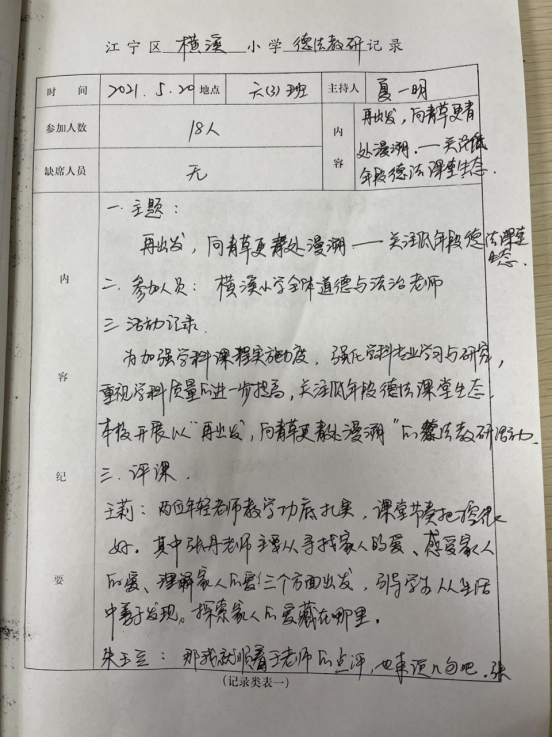 江宁区 横溪 小学 德法教研 记录
时间 2021.5.20 地点 六(3)班 主持人 夏一明
参加人数 18人 内容 再出发,向青草更青处漫溯.——关注低年段德法课堂生态.
缺席人员 无
内容纪要
一.主题:
再出发,向青草更青处漫溯——关注低年段德法课堂生态.
二.参加人员:横溪小学全体道德与法治老师
三.活动记录.
为加强学科课程实施力度,强化学科专业学习与研究,
重视学科质量的进一步提高,关注低年段德法课堂生态,
本校开展以“再出发,向青草更青处漫溯”的德法教研活动.
三.评课.
王莉:两回年轻老师教学功底扎实,课堂节奏把控很
好。其中张丹老师主要从寻找家人的爱、感受家人
的爱、理解家人的爱三个方面出发,引导学生从生活
中善于发现。探索家人的爱藏在哪里。
朱玉立:那我就顺着于老师的点评,也来谈几句吧.张
(记录类表一)